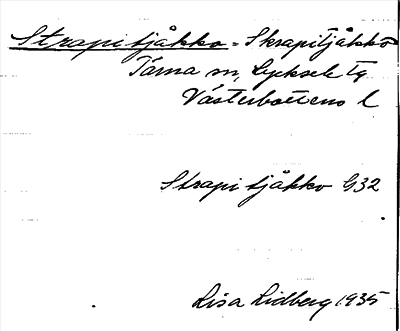 Strapitjåkko = Skrapitjåkkō
Tärna sn, Lycksele tg
Västerbottens l
Strapitjåkko G32
Lisa Lidberg 1935